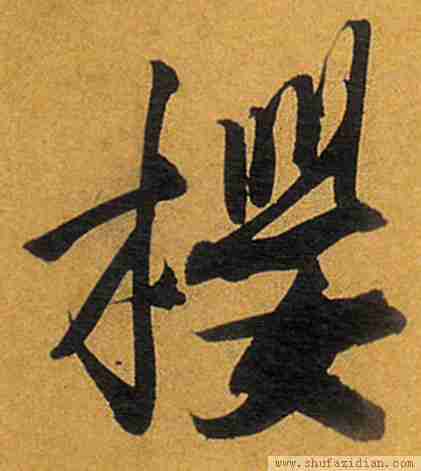 櫻
www.shufazidian.com